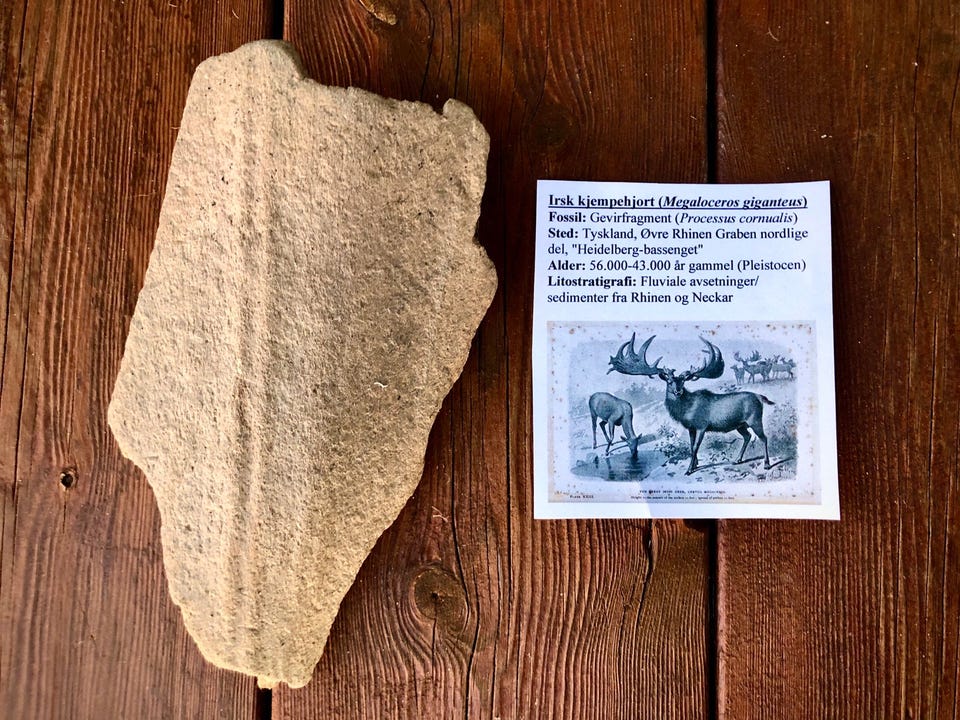 Irsk kjempehjort (Megaloceros giganteus)
Fossil: Gevirfragment (Processus cornualis)
Sted: Tyskland, Øvre Rhinen Graben nordlige
del, "Heidelberg-bassenget"
Alder: 56.000-43.000 år gammel (Pleistocen)
Litostratigrafi: Fluviale avsetninger/
sedimenter fra Rhinen og Neckar
THE GREAT IRISH DEER, CERVUS
PLATE XXIII.
Height to the summit of the antlers